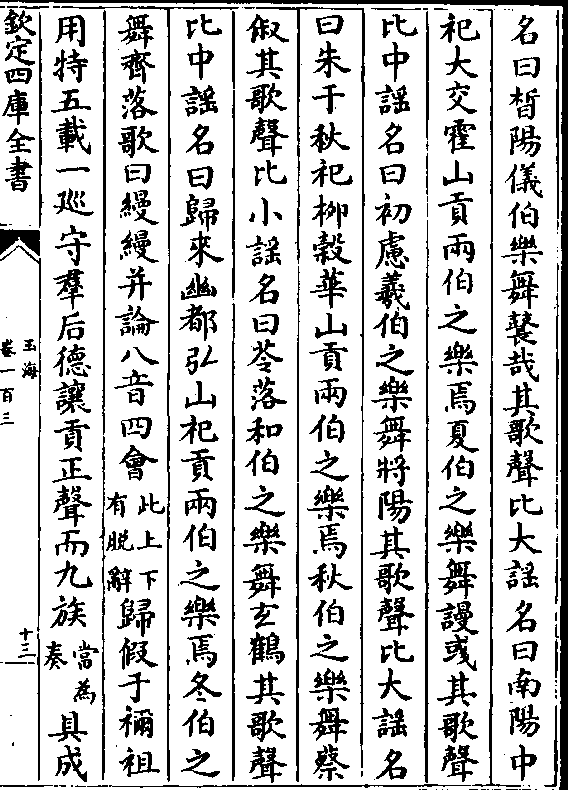 名曰晳陽儀伯樂舞鼚哉其歌聲比大謡名曰南陽中
祀大交霍山貢兩伯之樂焉夏伯之樂舞謾彧其歌聲
比中謡名曰初慮羲伯之樂舞將陽其歌聲比大謡名
曰朱于秋祀柳榖華山貢兩伯之樂焉秋伯之樂舞蔡
俶其歌聲比小謡名曰苓落和伯之樂舞玄鶴其歌聲
比中謡名曰歸來幽都弘山祀貢兩伯之樂焉冬伯之
舞齊落歌曰縵縵并論八音四會此上下有脱辭歸假于禰祖
用特五載一廵守羣后德讓貢正聲而九族當為奏具成
欽定四庫全書
玉海
卷一百三
十三